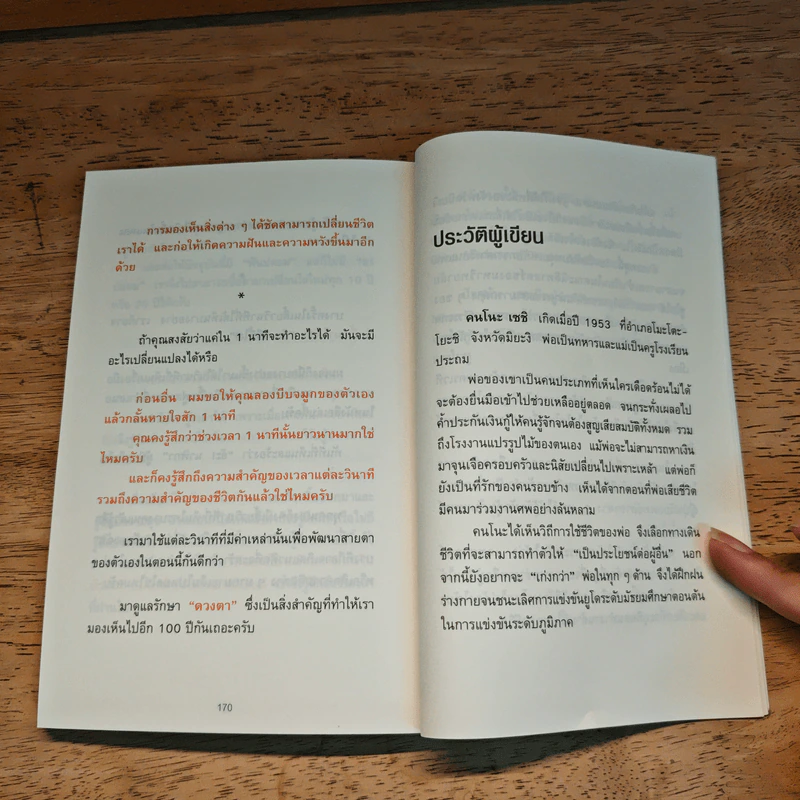 การมองเห็นสิ่งต่าง ๆ ได้ชัดสามารถเปลี่ยนชีวิต
เราได้ และก่อให้เกิดความฝันและความหวังขึ้นมาอีก
ด้วย
*
ถ้าคุณสงสัยว่าแค่ใน 1 นาทีจะทำอะไรได้ มันจะมี
อะไรเปลี่ยนแปลงได้หรือ
ก่อนอื่น ผมขอให้คุณลองบีบจมูกของตัวเอง
แล้วกลั้นหายใจสัก 1 นาที
คุณคงรู้สึกว่าช่วงเวลา 1 นาทีนั้นยาวนานมากใช่
ไหมครับ
และก็คงรู้สึกถึงความสำคัญของเวลาแต่ละวินาที
รวมถึงความสำคัญของชีวิตกันแล้วใช่ไหมครับ
เรามาใช้แต่ละวินาทีที่มีค่าเหล่านั้นเพื่อพัฒนาสายตา
ของตัวเองในตอนนี้กันดีกว่า
มาดูแลรักษา “ดวงตา” ซึ่งเป็นสิ่งสำคัญที่ทำให้เรา
มองเห็นไปอีก 100 ปีกันเถอะครับ
170
ประวัติผู้เขียน
คนโนะ เซชิ เกิดเมื่อปี 1953 ที่อำเภอโมะโตะ-
โยะชิ จังหวัดมิยะงิ พ่อเป็นทหารและแม่เป็นครูโรงเรียน
ประถม
พ่อของเขาเป็นคนประเภทที่เห็นใครเดือดร้อนไม่ได้
จะต้องยื่นมือเข้าไปช่วยเหลืออยู่ตลอด จนกระทั่งเผลอไป
ค้ำประกันเงินกู้ให้คนรู้จักจนต้องสูญเสียสมบัติทั้งหมด รวม
ถึงโรงงานแปรรูปไม้ของตนเอง แม้พ่อจะไม่สามารถหาเงิน
มาจุนเจือครอบครัวและนิสัยเปลี่ยนไปเพราะเหล้า แต่พ่อก็
ยังเป็นที่รักของคนรอบข้าง เห็นได้จากตอนที่พ่อเสียชีวิต
มีคนมาร่วมงานศพอย่างล้นหลาม
คนโนะได้เห็นวิธีการใช้ชีวิตของพ่อ จึงเลือกทางเดิน
ชีวิตที่จะสามารถทำตัวให้ “เป็นประโยชน์ต่อผู้อื่น” นอก
จากนี้ยังอยากจะ “เก่งกว่า” พ่อในทุก ๆ ด้าน จึงได้ฝึกฝน
ร่างกายจนชนะเลิศการแข่งขันยูโดระดับมัธยมศึกษาตอนต้น
ในการแข่งขันระดับภูมิภาค